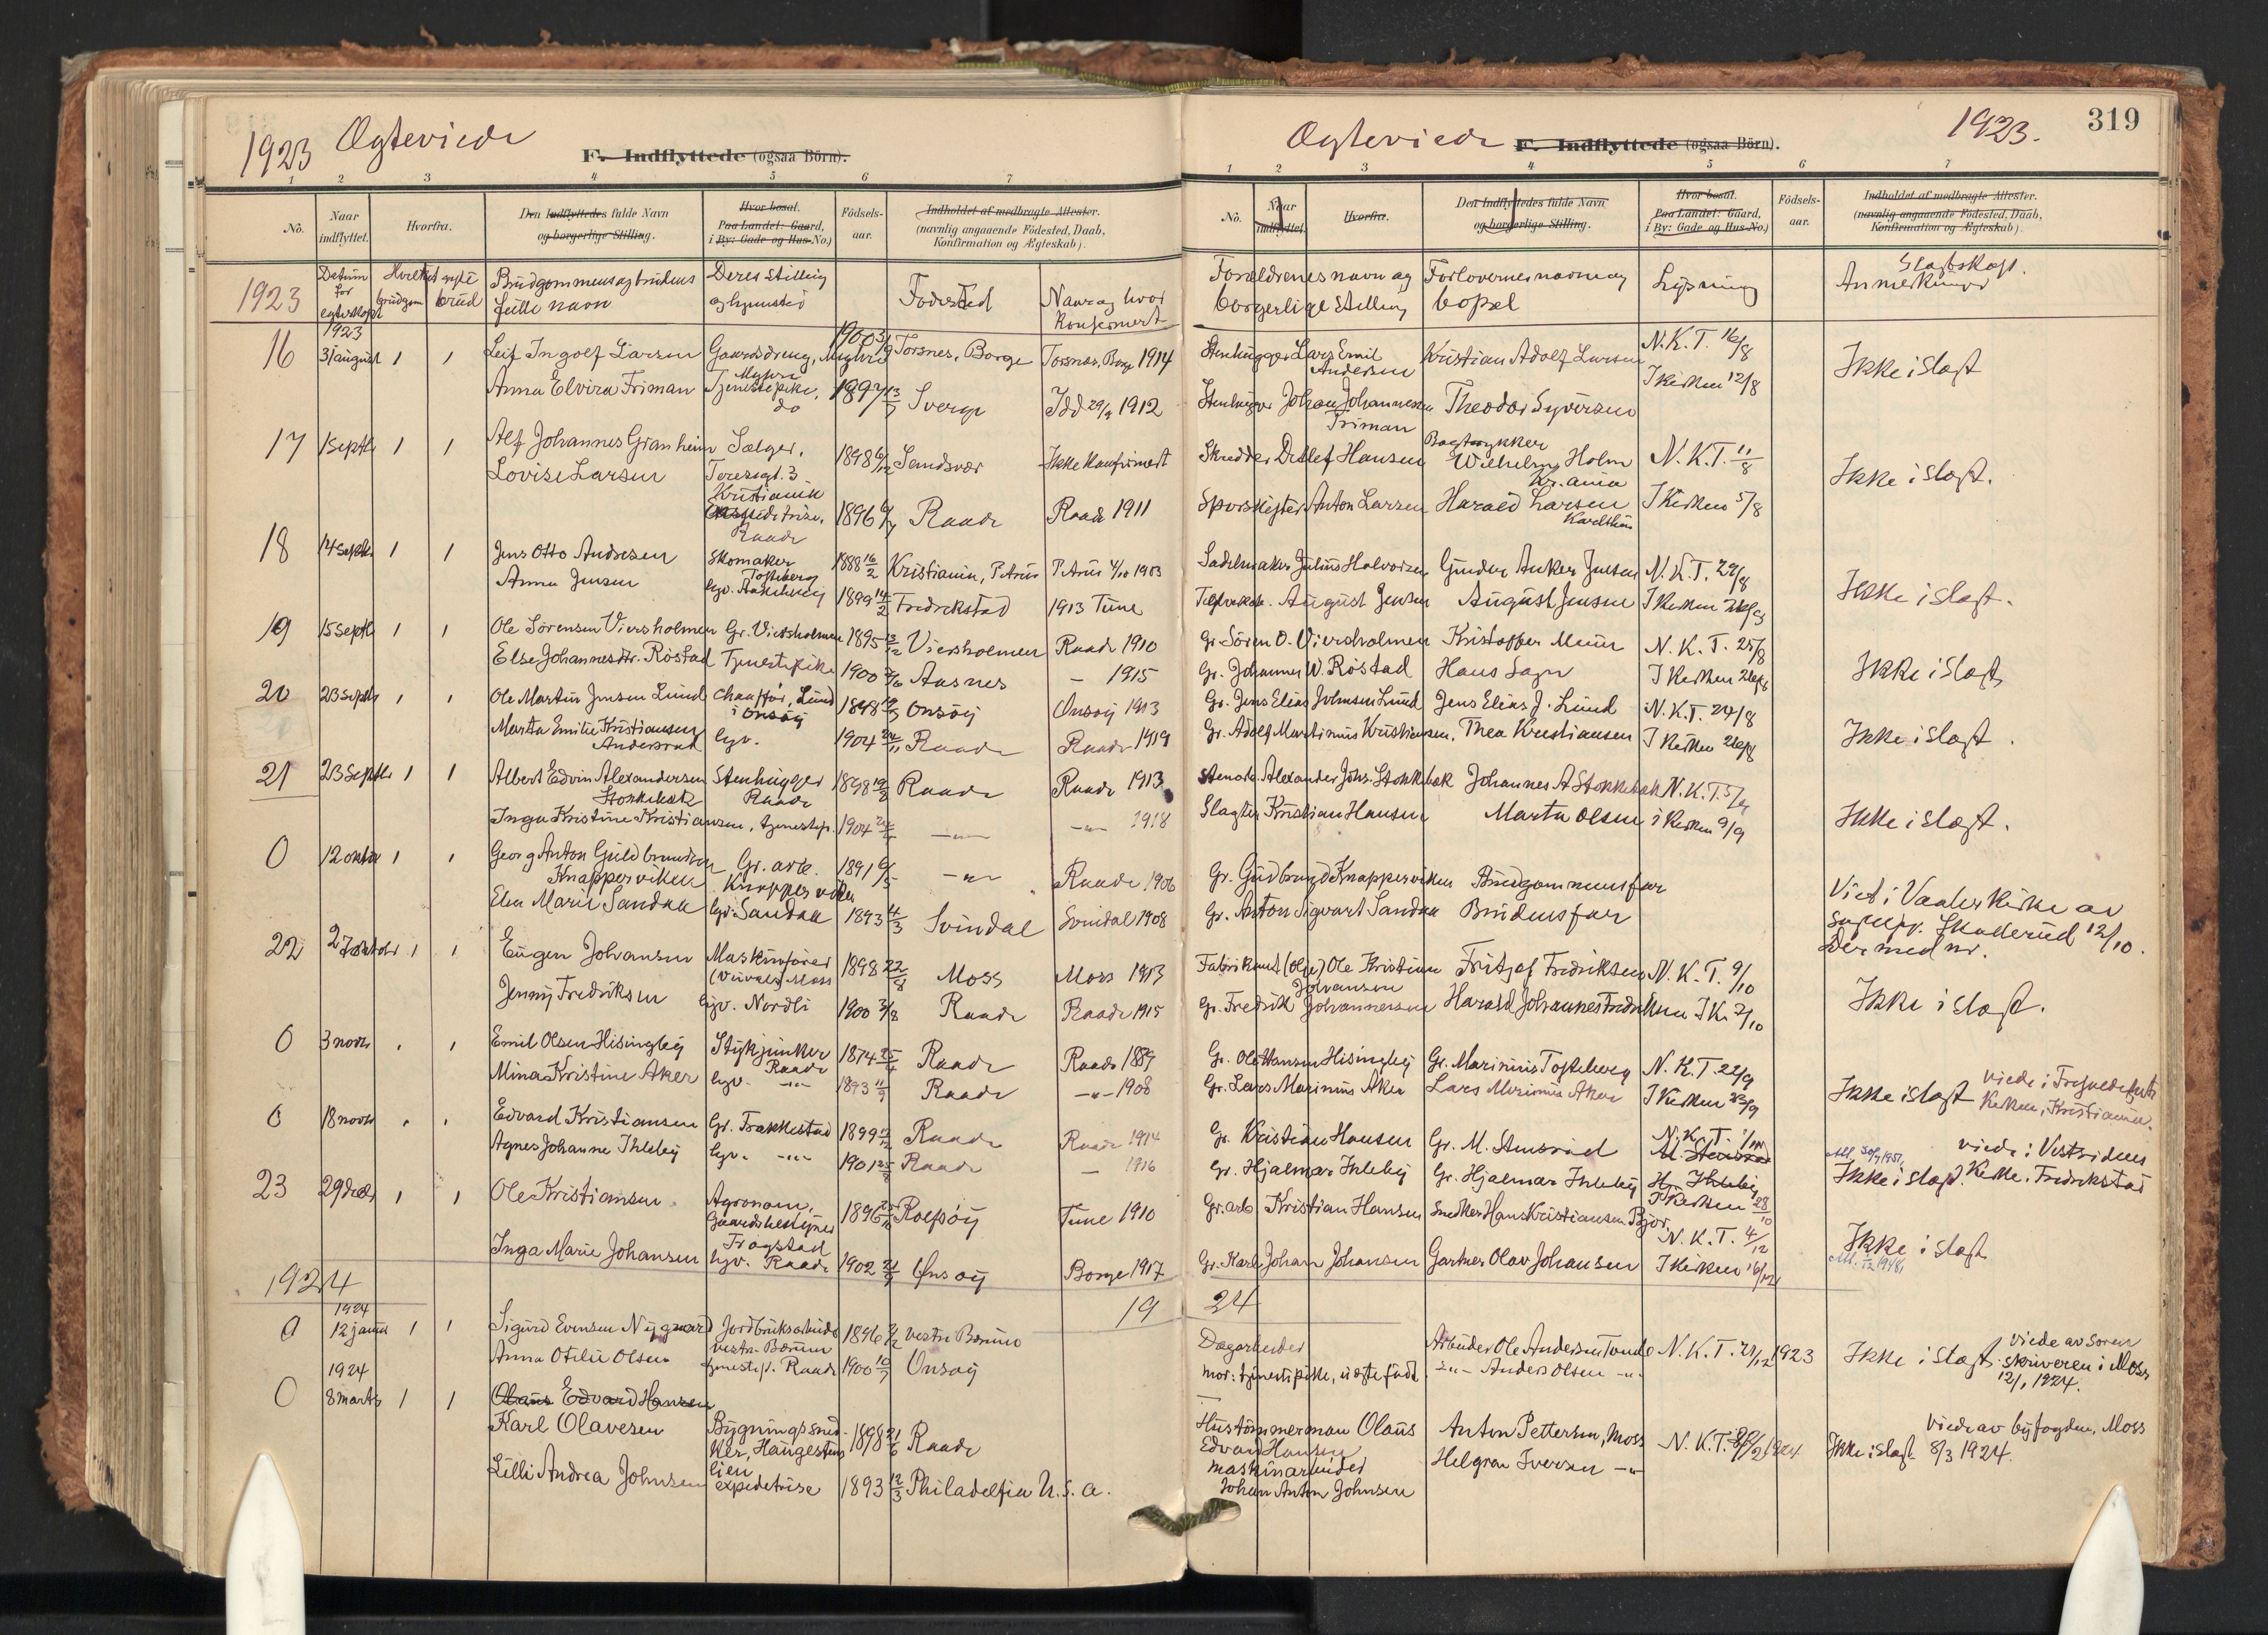 1923 Ægteviede
F. Indflyttede (ogsaa Börn).
1 2 3 4 5 6 7
No. Naar indflyttet. Hvorfra. Den Indflyttedes fulde Navn og borgerlige Stilling. Hvor bosat. Paa Landet: Gaard, i By: Gade og Hus-No.) Födsels-aar. Indholdet af medbragte Attester. (navnlig angaaende Födested, Daab, Konfirmation og Ægteskab).
1923 Datum for egteskapet Hvilket egte brudgom brud Brudgommens og brudens fulle navn Deres stilling og hjemsted Fødested Naar og hvor konfirmert
1923
16 31 august 1 1 Leif Ingolf Larsen Gaardsdreng, Myhre 1900 3/9 Torsnes, Borge Torsnes, Borge 1914
Anna Elvira Friman Tjenestepike, do 1897 13/7 Sverge Idd 29/9 1912
17 1 septbr 1 1 Alf Johannes Granheim Sælger, 1898 6/12 Sandsvær Ikke konfirmert
Lovise Larsen Kristiania
Raade 1896 Raade Raade 1911
18 14 septbr 1 1 Jens Otto Andresen Skomaker Tofteberg 1888 16/2 Kristiania, Petrus Petrus 4/10 1903
Anna Jensen hgv. 1899 14/2 Fredrikstad 1913 Tune
19 15 septbr 1 1 Ole Sörensen Viersholmen Gr. Viersholmen 1895 13/12 Viersholmen Raade 1910
Else Johannesdtr. Röstad Tjenestepike 1900 Aasnes — 1915
20 23 septbr 1 1 Ole Martin Jensen Lund Chauffør, Lund i Onsöy 1898 Onsöy Onsöy 1913
Marta Emilie Kristiansen Andersrød hgv. 1904 24/11 Raade Raade 1919
21 23 septbr 1 1 Albert Edvin Alexandersen Stokkebæk Stenhugger Raade 1898 19/8 Raade Raade 1913
Inga Kristine Kristiansen, tjenestep. 1904 —"— —"— 1918
0 12 oktbr 1 1 Georg Anton Guldbrandsen Knapperviken Gr. arb. Knapperviken 1891 6/5 —"— Raade 1906
Elen Marie Sandaa hgv. Sandaa 1893 4/3 Svindal Svindal 1908
22 27 oktober 1 1 Eugen Johansen Maskinfører Moss 1898 22/8 Moss Moss 1913
Jenny Fredriksen hgv. Nordli 1900 3/8 Raade Raade 1915
0 3 novbr Emil Olsen Hisingby Stykjunker Raade 1874 25/4 Raade Raade 1889
Mina Kristine Aker hgv. —"— 1893 11/9 Raade —"— 1908
0 18 novbr Edvard Kristiansen Gr. Trakkestad 1899 Raade Raade 1914
Agnes Johanne Ihleby hgv. —"— 1901 25/8 Raade — 1916
23 29 decbr 1 1 Ole Kristiansen Agronom, Gaardsbestyrer Frogstad 1896 Rolfsöy Tune 1910
Inga Marie Johansen hgv. Raade 1902 21/9 Onsöy Borge 1917
1924
1924
0 12 januar 1 1 Sigurd Evensen Nygaard Jordbruksarbeider vestre Bærum 1896 vestre Bærum
Anna Otilie Olsen tjenestep. Raade 1900 10/7 Onsöy
1924
0 8 marts 1 1 Olaus Edvard Hansen
Karl Olavesen Bygningssnedker, Haugestenlien 1898 21/6 Raade
Lilli Andrea Johnsen expeditrise 1893 12/3 Philadelfia U.S.A.
Ægteviede 1923. 319
F. Indflyttede (ogsaa Börn).
1 2 3 4 5 6 7
No. Naar indflyttet. Hvorfra. Den Indflyttedes fulde Navn og borgerlige Stilling. Hvor bosat. Paa Landet: Gaard, i By: Gade og Hus-No.) Födsels-aar. Indholdet af medbragte Attester. (navnlig angaaende Födested, Daab, Konfirmation og Ægteskab).
Forældrenes navn og borgerlige stilling Forlovernes navn og bopel Lysning Slægtskap. Anmerkninger
Stenhugger Lars Emil Andersen Kristian Adolf Larsen N.K.T. 16/8 Ikke i slægt
Stenhugger Johan Johannesen Friman Theodor Syversen I kirken 12/8
Skredder Detlef Hansen Bogtrykker Wilhelm Holm Kr.ania N.K.T. 11/8 Ikke i slægt.
Sporskifter Anton Larsen Harald Larsen Karlshus I Kirken 5/8
Sadelmaker Julius Halvorsen Gunder Anker Jensen N.K.T. 29/8 Ikke i slægt.
August Jensen August Jensen I Kirken
Gr. Sören O. Viersholmen Kristoffer Muun N.K.T. 25/8 Ikke i slægt
Gr. Johannes W. Röstad Hans I Kirken
Gr. Jens Elias Johnsen Lund Jens Elias J. Lund N.K.T. 24/8 Ikke i slægt.
Gr. Adolf Martinius Kristiansen, Thea Kristiansen I Kirken
Stenarb. Alexander Johs. Stokkebæk Johannes A Stokkebæk N.K.T. 5/9 Ikke i slægt.
Slagter Kristian Hansen Marta Olsen i Kirken 9/9
Gr. Gudbrand Knapperviken Brudgommens far Viet i Vaaler Kirke av sognepr. Skaderud 12/10.
Gr. Anton Sigvart Sandaa Brudens far Der med nr.
Fabrikant (olje) Ole Kristian Johansen Fritjof Fredriksen N.K.T. 9/10 Ikke i slægt.
Gr. Fredrik Johannessen Harald Johannes Fredriksen I K. 7/10
Gr. Ole Hansen Hisingby Gr. Marinius Tofteberg N.K.T. 22/9 Ikke i slægt viede i Trefoldighets Kirken, Kristiania.
Gr. Lars Marinius Aker Lars Marinius Aker I Kirken 23/9
Gr. Kristian Hansen Gr. M. Amsrød N.K.T. viede i Vestsidens Kirke. Fredrikstad
Gr. Hjalmar Ihleby Gr. Hjalmar Ihleby Hj. Ihleby Ikke i slægt.
I Kirken 28/10
Gr. arb Kristian Hansen Snedker Hans Kristiansen Bjor, N.K.T. 4/12 Ikke i slægt
Gr. Karl Johan Johansen Gartner Olav Johansen I Kirken 16/12
19 24
Dagarbeider Arbeider Ole Andersen Tande N.K.T. 21/12 1923 Ikke i slægt. viede av Soren skriveren i Moss 12/1 1924.
mor: tjenestepike, uægte født —"— Anders Olsen —"—
Hustömmerman Olaus Edvard Hansen Anton Pettersen, Moss N.K.T. 1924 Ikke i slægt viede av byfogden, Moss 8/3 1924.
maskinarbeider Johan Anton Johnsen Helgran Iversen —"—